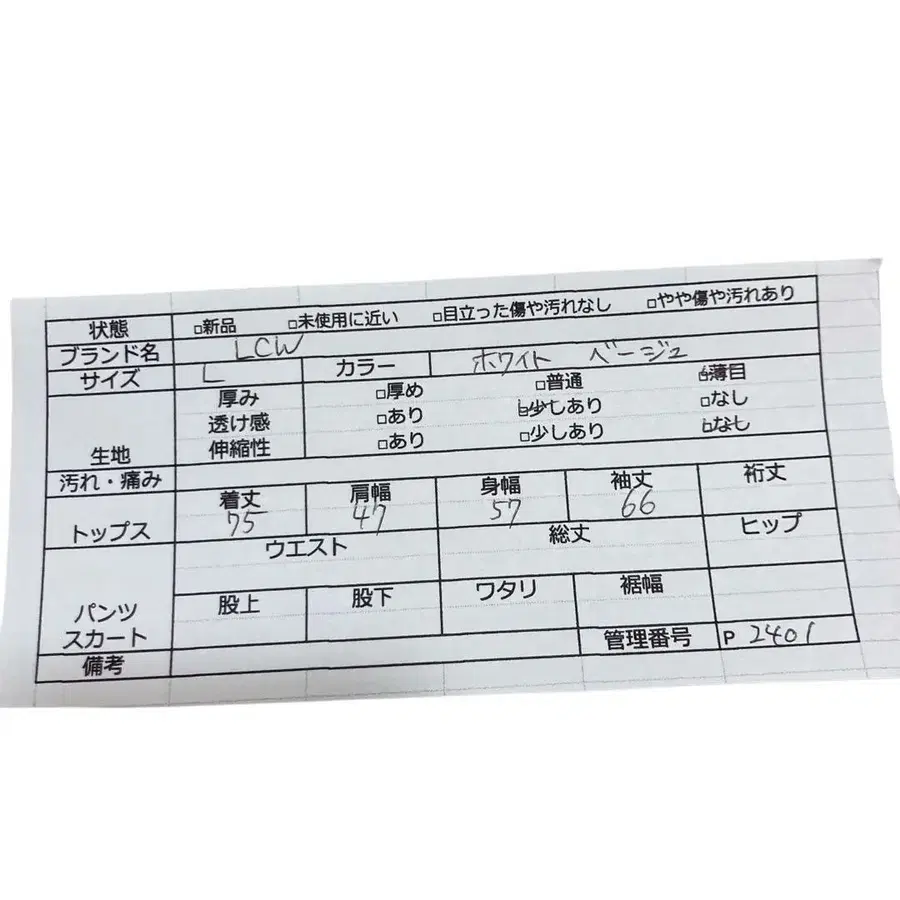 状態 □新品 □未使用に近い □目立った傷や汚れなし □やや傷や汚れあり
ブランド名 LCW
サイズ L カラー ホワイト ベージュ
厚み □厚め □普通 ☑薄目
透け感 □あり ☑少しあり □なし
生地 伸縮性 □あり □少しあり ☑なし
汚れ・痛み
着丈 肩幅 身幅 袖丈 裄丈
トップス 75 47 57 66
ウエスト 総丈 ヒップ
股上 股下 ワタリ 裾幅
パンツ
スカート 管理番号 P 2401
備考